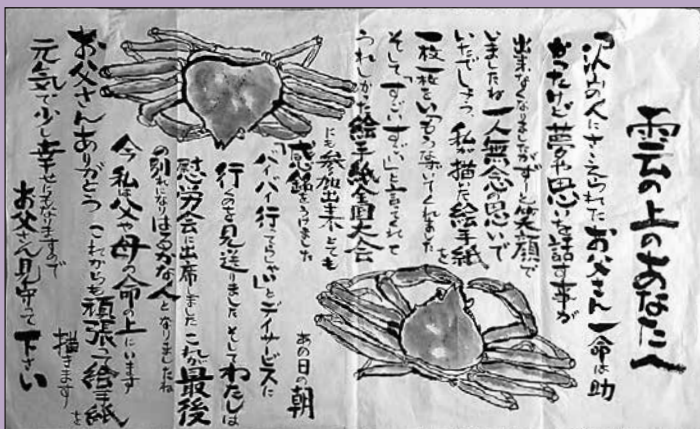 雲の上のあなたへ
沢山の人にささえられたお父さん一命は助
かったけど夢や思いを話す事が
出来なくなりましたがずーと笑顔で
いましたね 一人無念の思いで
いたでしょう、私が描いた絵手紙を
一枚一枚をいつもうなずいてくれました
そして「すごいすごい」と言ってくれて
うれしかった絵手紙全国大会
にも参加出来とても
感銘をうけました
あの日の朝
「バイバイ行ってらっしゃい」とデイサービスに
行くのを見送りました そしてわたしは
慰労会に出席しました これが最後
の別れになりはるかな人となりましたね
今私は父や母の命の上にいます
お父さんありがとう これからも頑張って絵手紙を
描きます
元気で少し幸せにもなりますので
お父さん見守って下さい